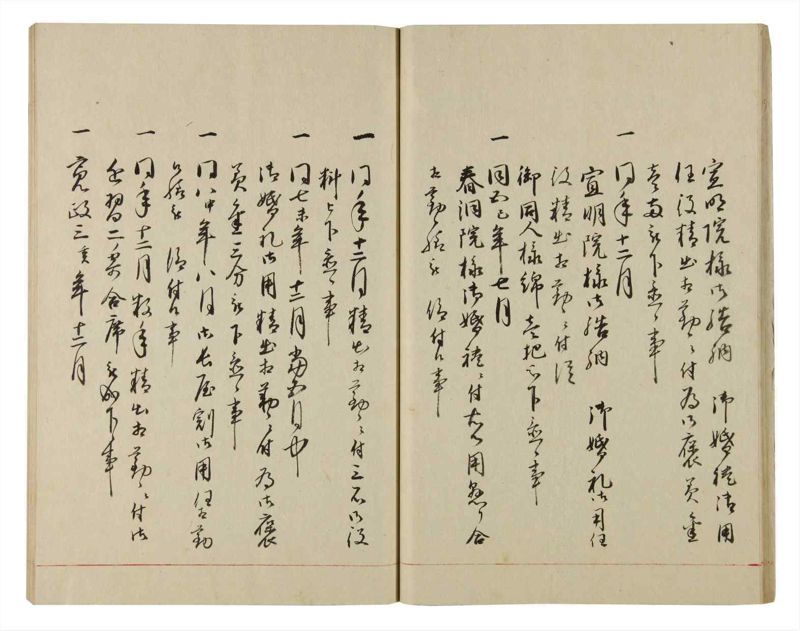 宣明院様御結納 御婚礼御用
任役精出相勤候ニ付為御褒美金
壱両被下置候事
一 同年十二月
宣明院様御結納 御婚礼御用任
役精出相勤候ニ付従
御同人様綿壱把被下置候事
一 同五巳年七月
春洞院様御婚礼ニ付 用懸り合
相勤候様被 仰付候事
一 同年十二月精出相勤候ニ付三石御役
料被下置候事
一 同七未年十二月 月中
御婚礼御用精出相勤候ニ付為御褒
美金三分被下置候事
一 同八申年八月御長屋割御用任相勤
候様被 仰付候事
一 同年十二月数年精出相勤候ニ付御
近習二番合席被成下候事
一 寛政三亥年十二月